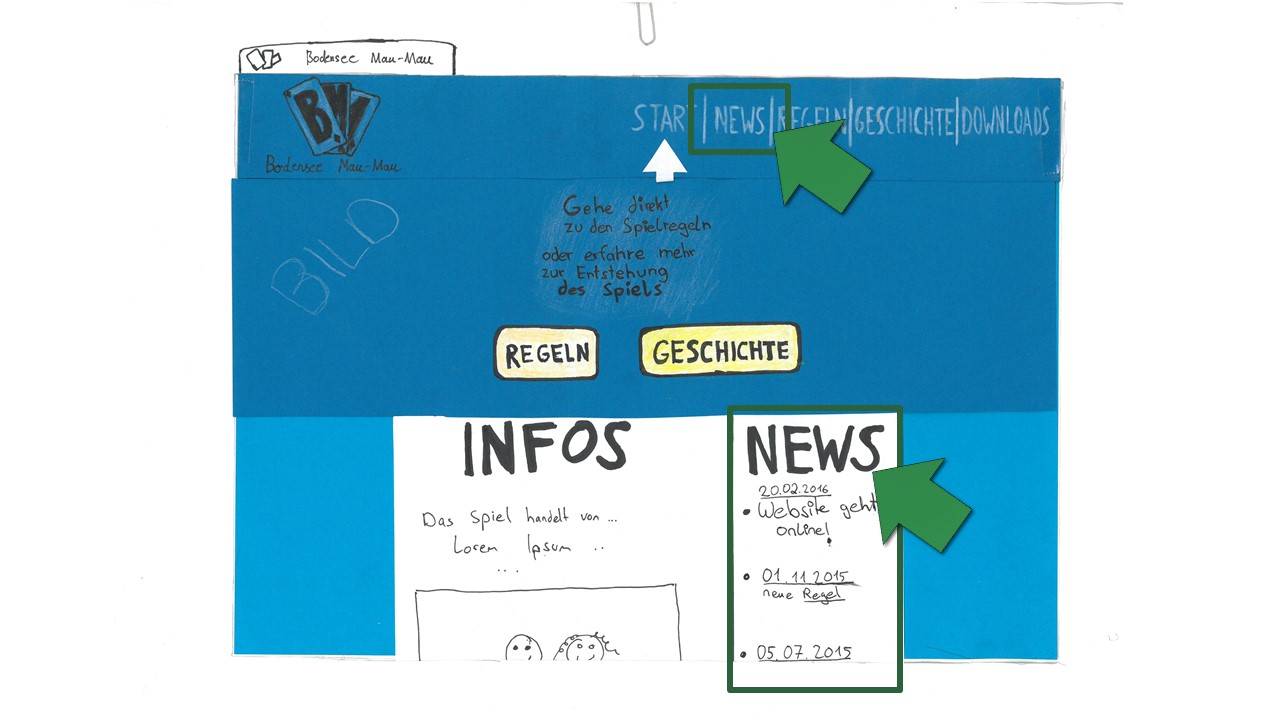 Bodensee Mau-Mau
START | NEWS | REGELN | GESCHICHTE | DOWNLOADS
B.M
Bodensee Mau-Mau
BILD
Gehe direkt
zu den Spielregeln
oder erfahre mehr
zur Entstehung
des Spiels
REGELN
GESCHICHTE
INFOS
Das Spiel handelt von ...
Lorem Ipsum ..
...
NEWS
20.02.2016
• Website geht
online!
• 01.11.2015
neue Regel
• 05.07.2015